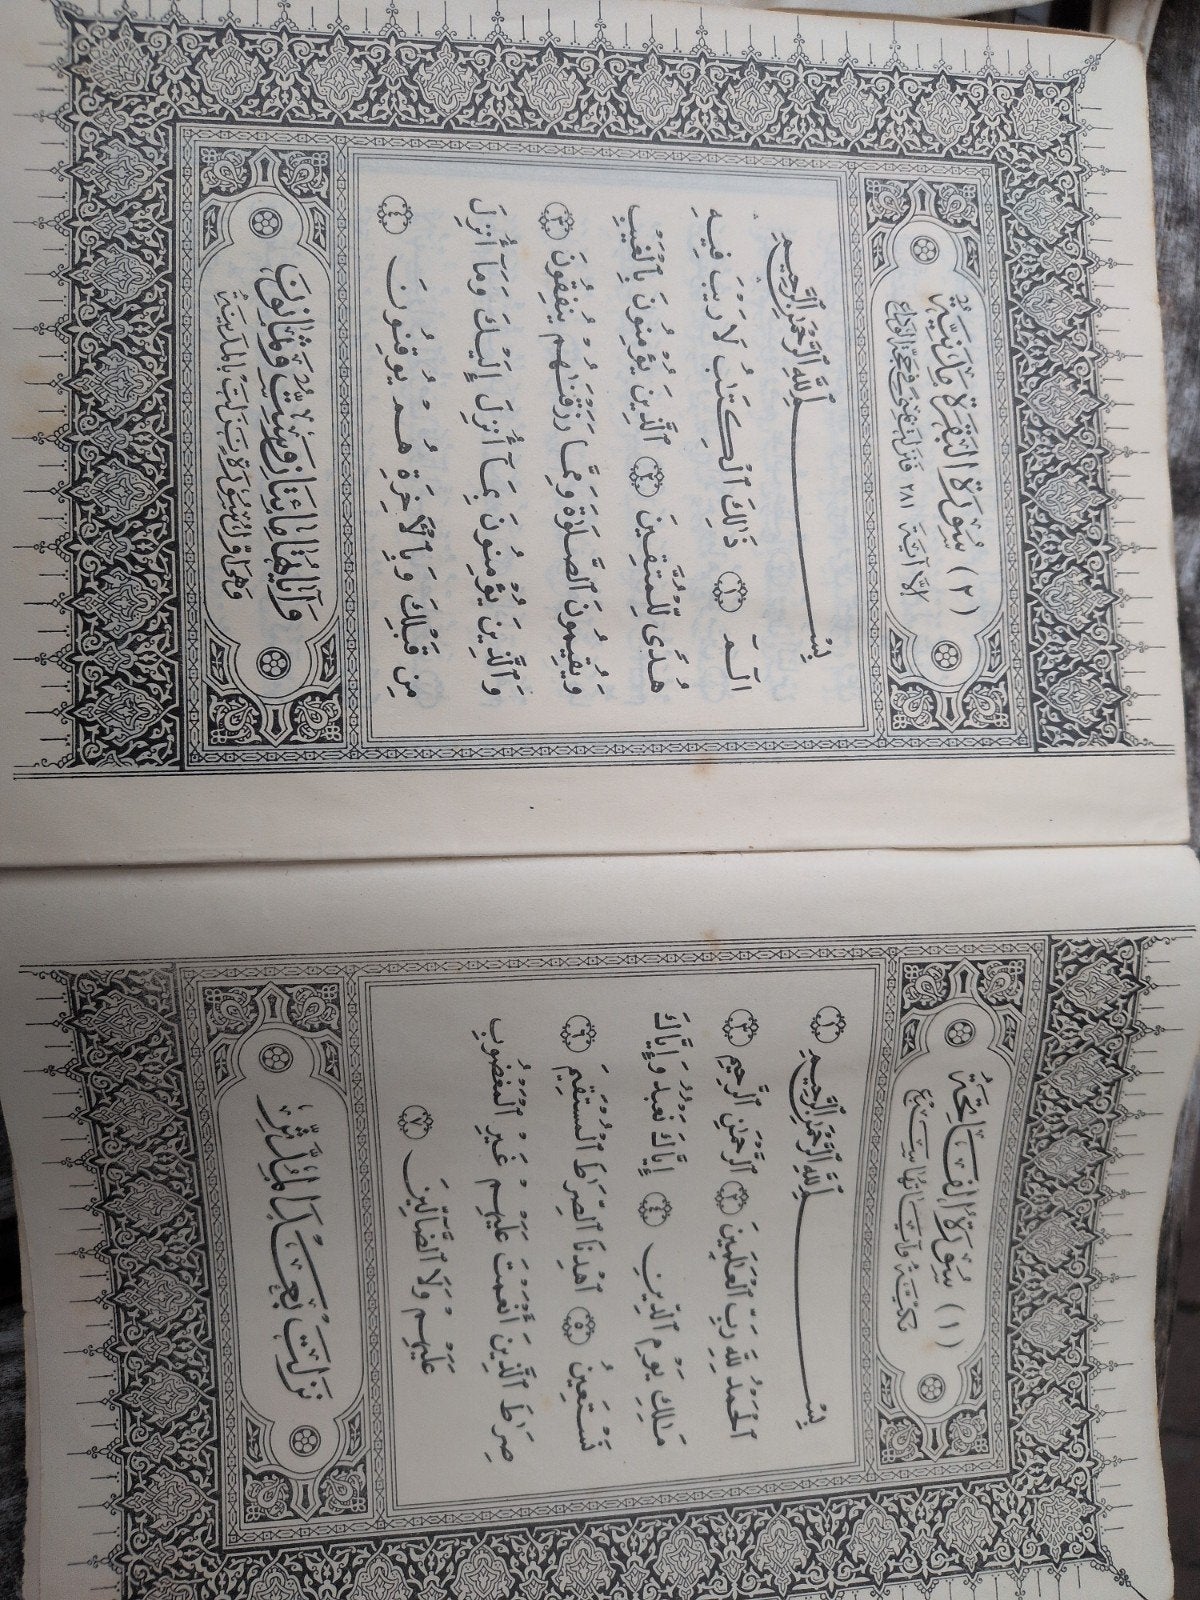 (١) سُورَةُ الفَاتِحَةِ
مَكِّيَّةٌ وَآيَاتُهَا سَبْعٌ
بِسْمِ ٱللَّهِ ٱلرَّحْمَٰنِ ٱلرَّحِيمِ ١
ٱلْحَمْدُ لِلَّهِ رَبِّ ٱلْعَٰلَمِينَ ٢ ٱلرَّحْمَٰنِ ٱلرَّحِيمِ ٣
مَٰلِكِ يَوْمِ ٱلدِّينِ ٤ إِيَّاكَ نَعْبُدُ وَإِيَّاكَ
نَسْتَعِينُ ٥ ٱهْدِنَا ٱلصِّرَٰطَ ٱلْمُسْتَقِيمَ ٦
صِرَٰطَ ٱلَّذِينَ أَنْعَمْتَ عَلَيْهِمْ غَيْرِ ٱلْمَغْضُوبِ
عَلَيْهِمْ وَلَا ٱلضَّآلِّينَ ٧
نَزَلَتْ بَعْدَ المُدَّثِّرِ
(٢) سُورَةُ البَقَرَةِ مَدَنِيَّةٌ
إِلَّا آيَة ٢٨١ فَنَزَلَتْ بِمِنًى فِي حَجَّةِ الوَدَاعِ
بِسْمِ ٱللَّهِ ٱلرَّحْمَٰنِ ٱلرَّحِيمِ
الٓمٓ ١ ذَٰلِكَ ٱلْكِتَٰبُ لَا رَيْبَ فِيهِ
هُدًى لِّلْمُتَّقِينَ ٢ ٱلَّذِينَ يُؤْمِنُونَ بِٱلْغَيْبِ
وَيُقِيمُونَ ٱلصَّلَوٰةَ وَمِمَّا رَزَقْنَٰهُمْ يُنفِقُونَ ٣
وَٱلَّذِينَ يُؤْمِنُونَ بِمَآ أُنزِلَ إِلَيْكَ وَمَآ أُنزِلَ
مِن قَبْلِكَ وَبِٱلْأٓخِرَةِ هُمْ يُوقِنُونَ ٤
وَآيَاتُهَا مِائَتَانِ وَسِتٌّ وَثَمَانُونَ
وَهِيَ أَوَّلُ سُورَةٍ نَزَلَتْ بِالمَدِينَةِ